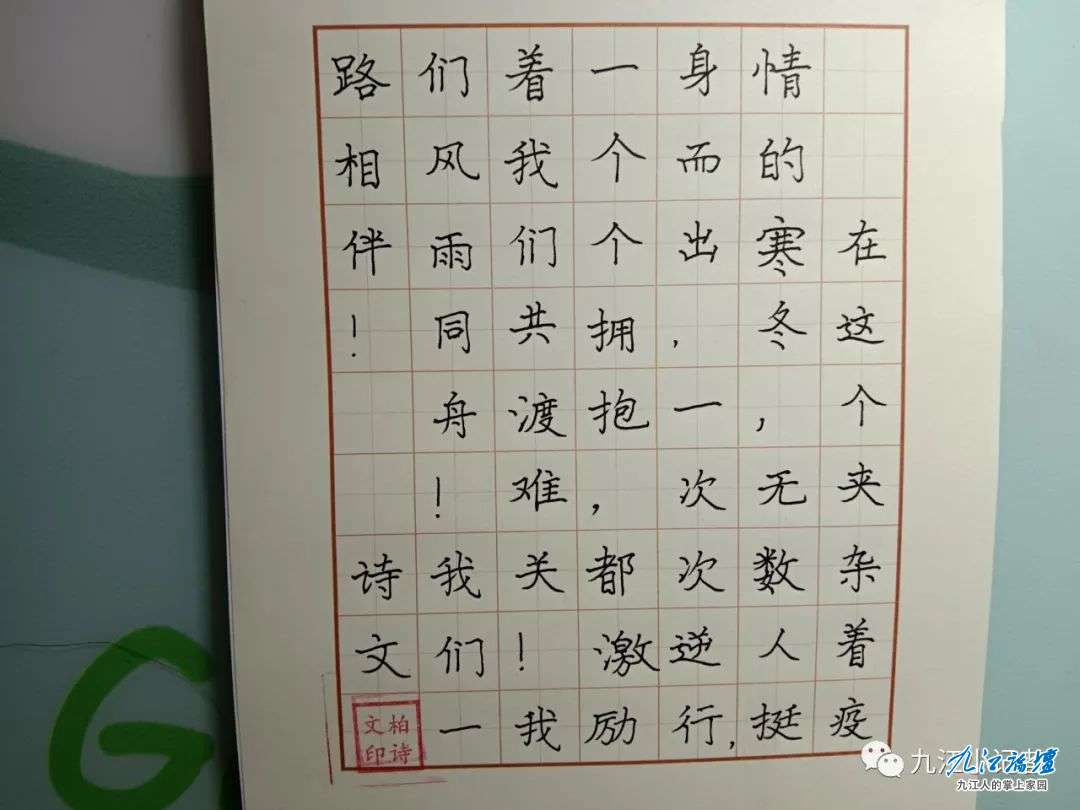 在这个夹杂着疫
情的寒冬，无数人挺
身而出，一次次逆行，
一个个拥抱，都激励
着我们共渡难关！我
们风雨同舟！我们一
路相伴！ 诗文
柏诗
文印
九江
九江论坛
九江人的掌上家园